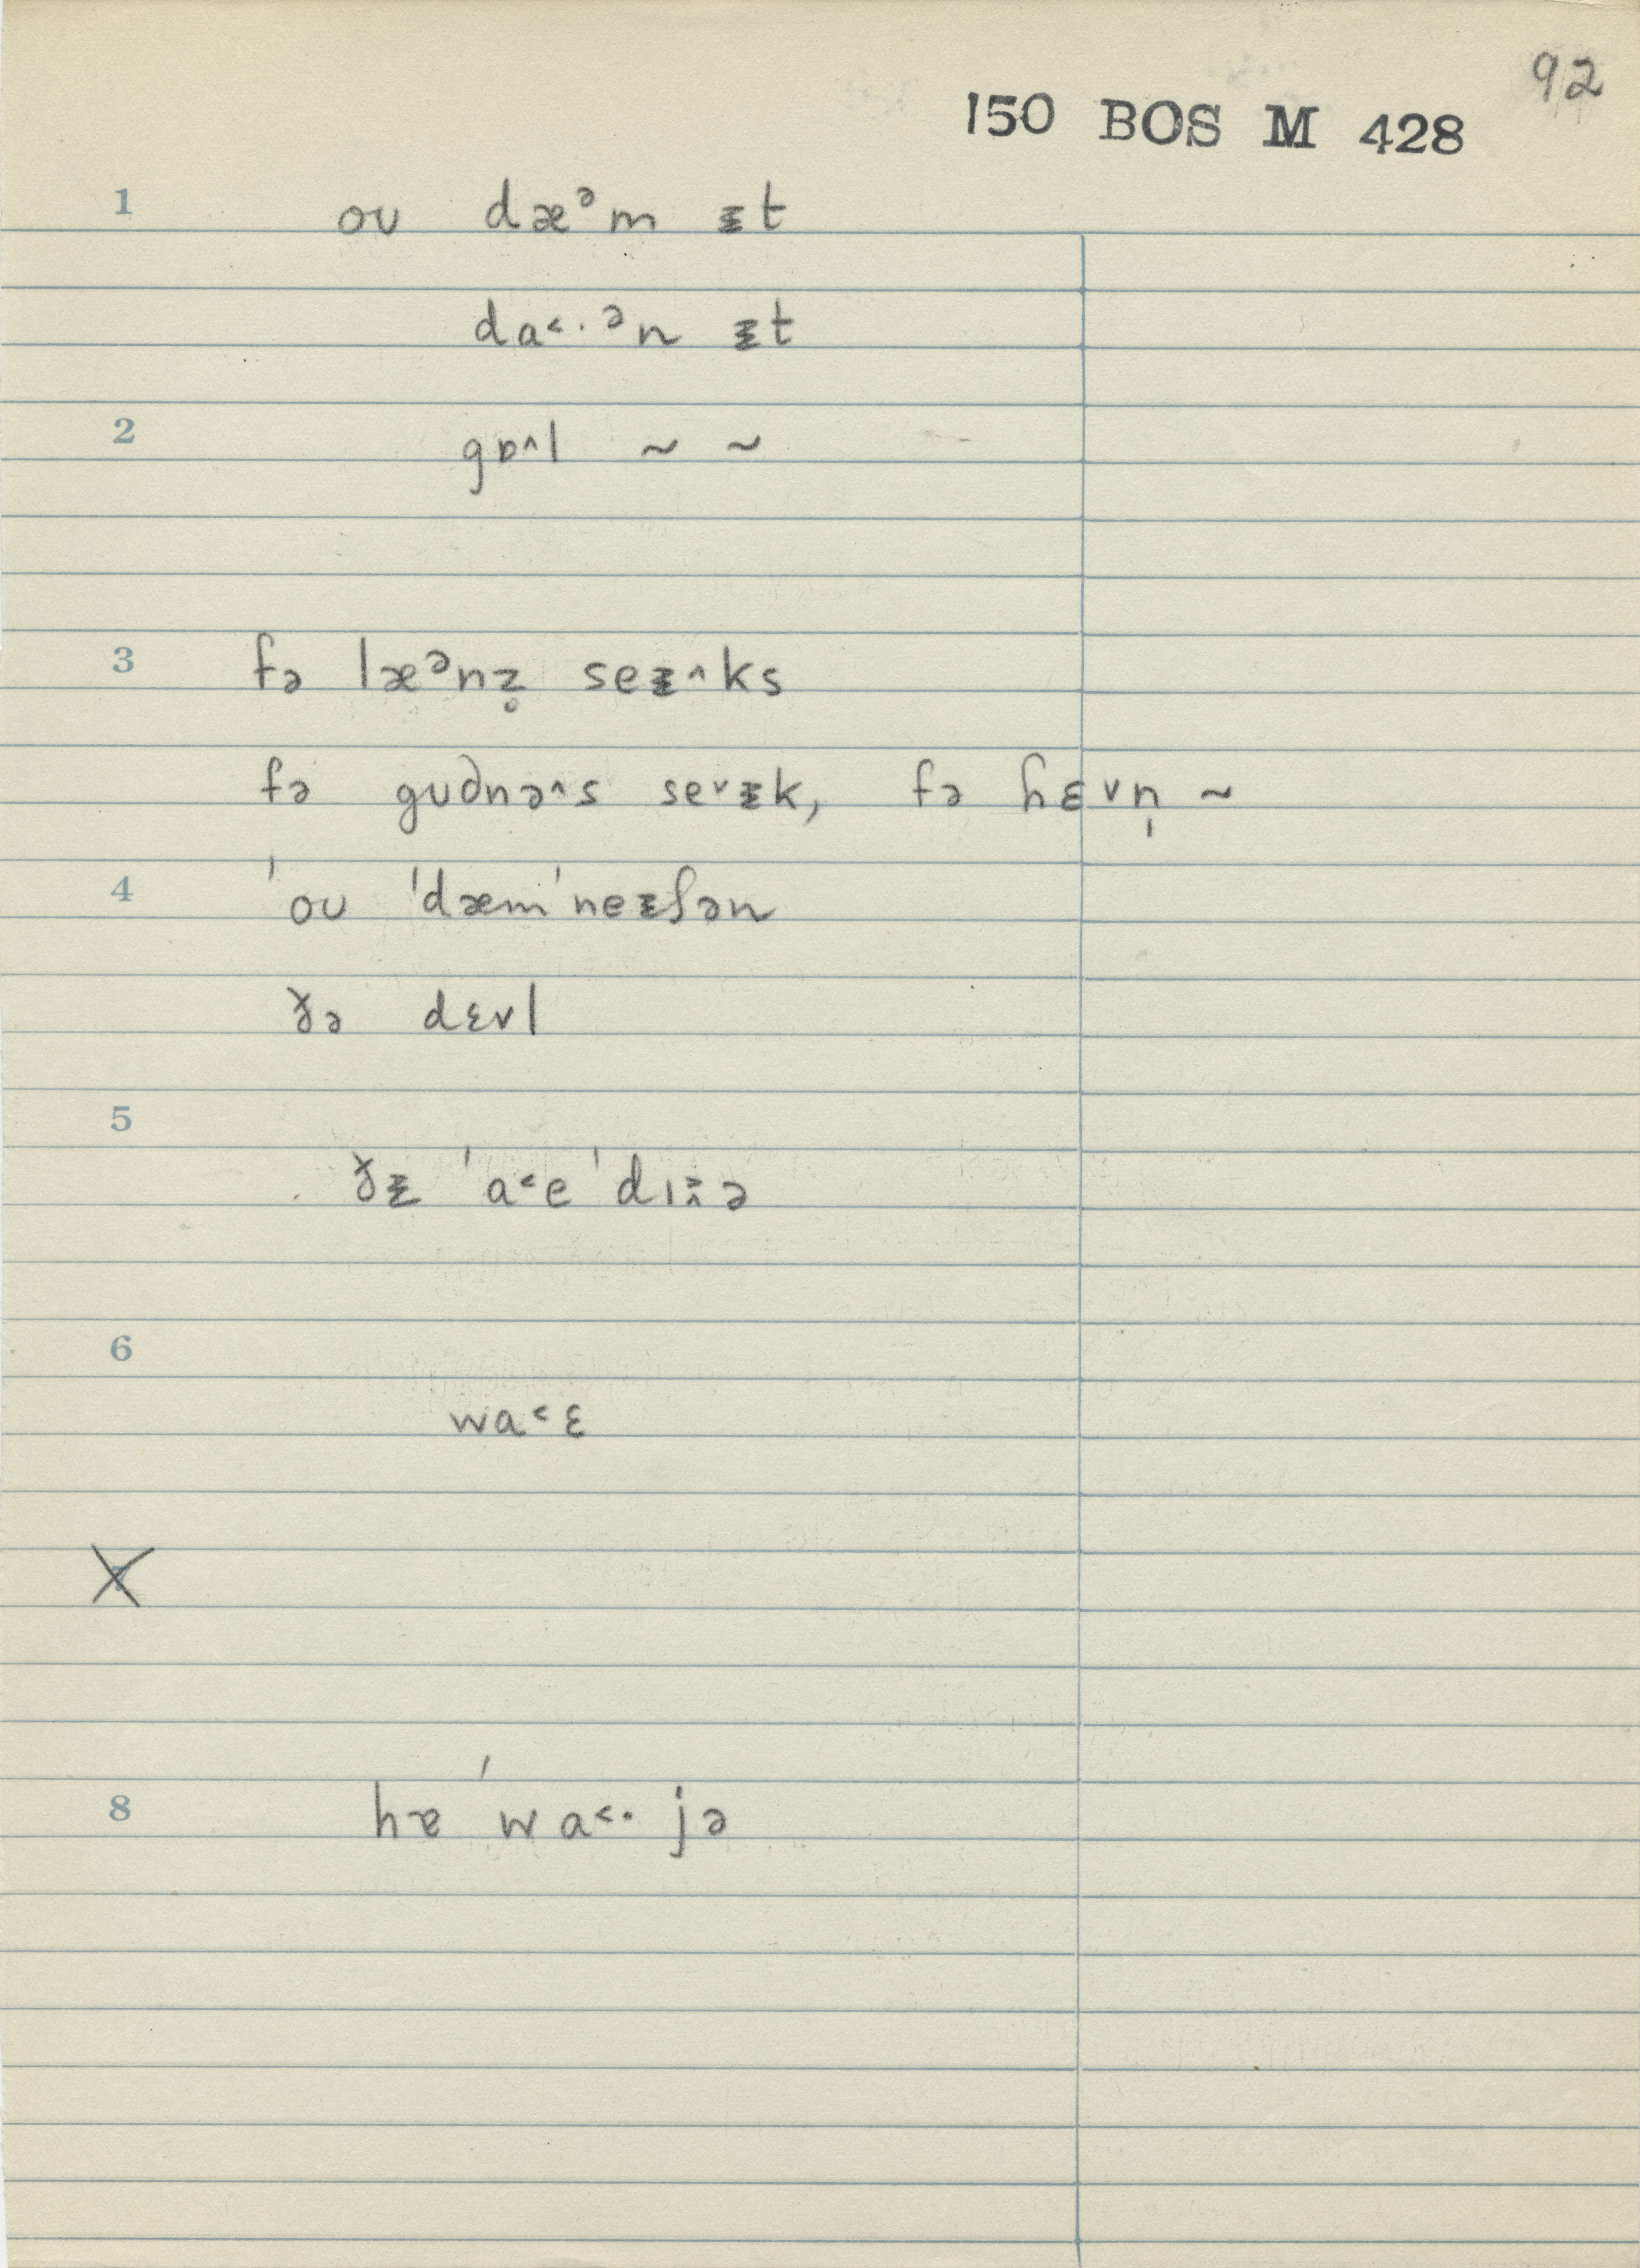 92
150 BOS M 428
1 oʊ dæᵊm ᵻt
da˂·ᵊn ᵻt
2 gɒ^l ~ ~
3 fə læᵊnz̥ seᵻ^ks
fə gʊdnə^s se˅ᵻk, fə hɛvn̩ ~
4 ˈoʊ ˈdæmˈneᵻʃən
ðə dɛvl
5 ðᵻ ˈa˂eˈdɪᵻ̯ə
6 wa˂ɛ
7
8 hæ ˈwa˂· jə